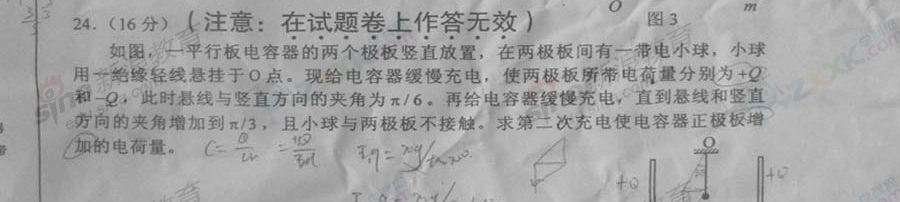 O m
图 3
24.（16 分）（注意：在试题卷上作答无效）
如图，一平行板电容器的两个极板竖直放置，在两极板间有一带电小球，小球
用一绝缘轻线悬挂于 O 点。现给电容器缓慢充电，使两极板所带电荷量分别为 +Q
和 -Q，此时悬线与竖直方向的夹角为 π/6。再给电容器缓慢充电，直到悬线和竖直
方向的夹角增加到 π/3，且小球与两极板不接触。求第二次充电使电容器正极板增
加的电荷量。
O
+Q +Q